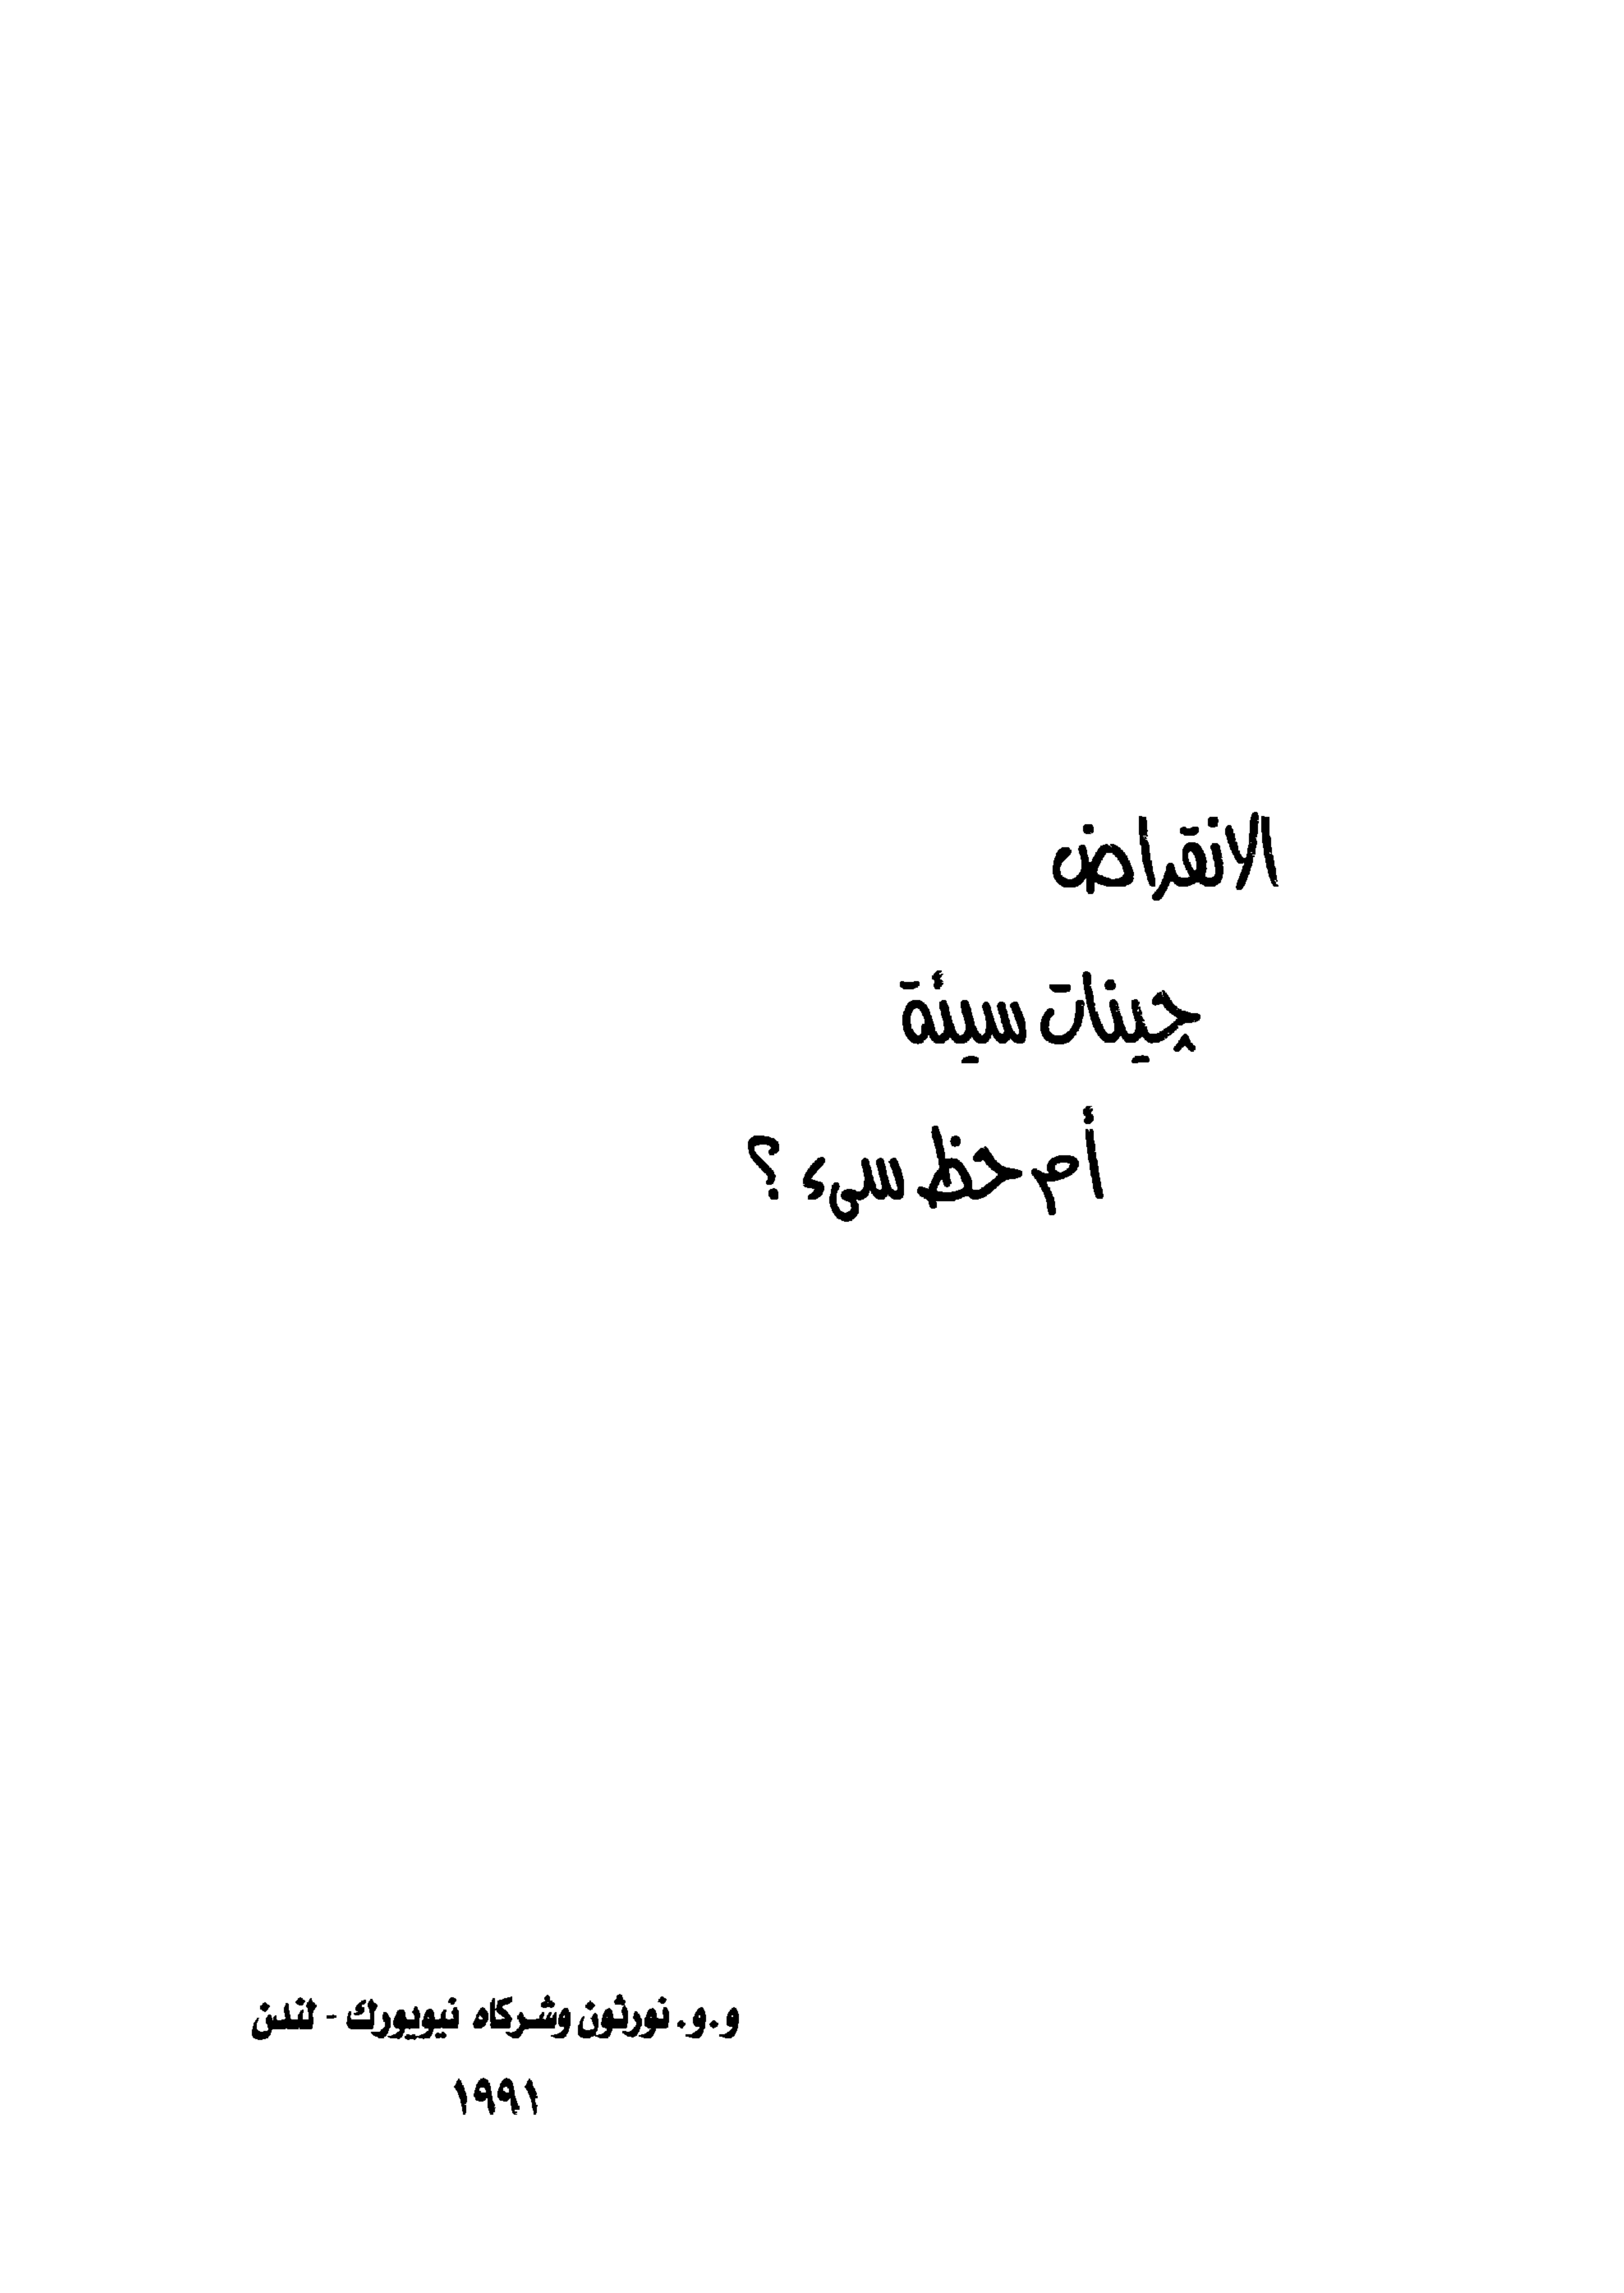 الانقراض
چينات سيئة
أم حظ سىء ؟
و.و. نورثون وشركاه نيويورك - لندن
١٩٩١